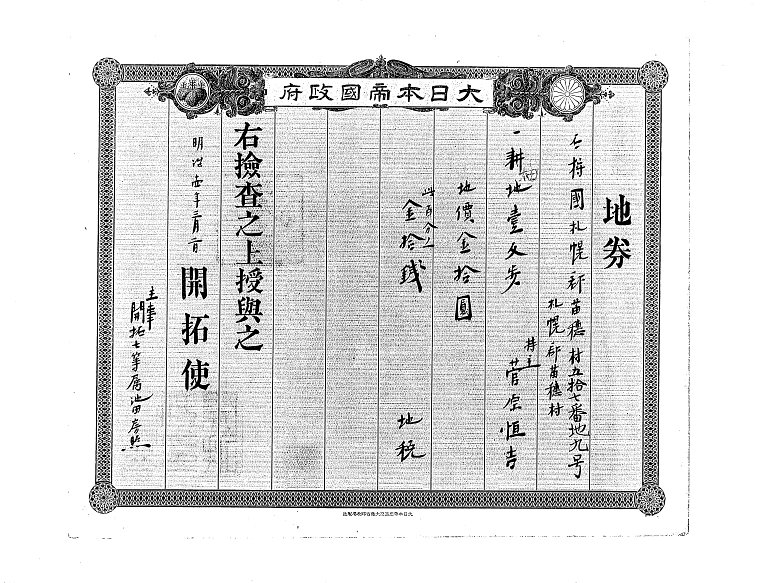 大日本帝國政府
地券
石狩國札幌郡苗穂村五拾七番地九号
札幌郡苗穂村
一耕地壹反歩
持主 菅原恒吉
地價金拾圓
此百分ノ一
金拾錢
地税
右檢査之上授與之
明治 年二月 日
開拓使
主事
開拓七等属